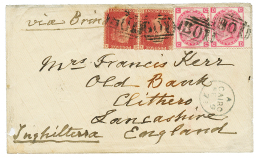 via Brin
B01
B01
Mrs Francis Kerr
Old Bank
Clithero
Lancashire
England
Inghilterra
CAIRO